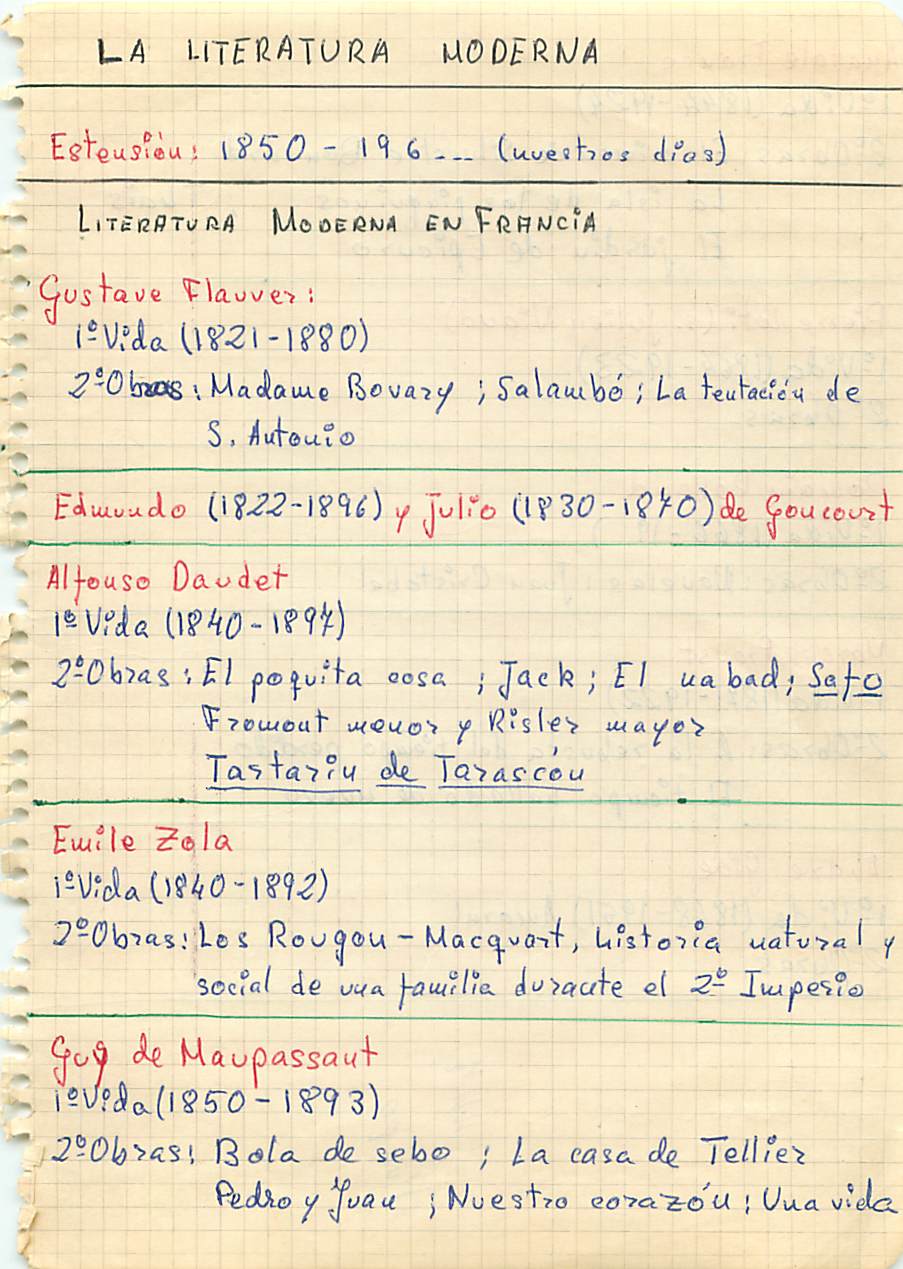 LA LITERATURA MODERNA
Estensión: 1850 - 196... (nuestros días)
LITERATURA MODERNA EN FRANCIA
Gustave Flauver:
1º Vida (1821-1880)
2º Obras: Madame Bovary ; Salambó ; La tentación de
S. Antonio
Edmundo (1822-1896) y Julio (1830-1870) de Goucourt
Alfonso Daudet
1º Vida (1840-1897)
2º Obras: El poquita cosa ; Jack ; El nabad ; Safo
Fromont menor y Risler mayor
Tartarin de Tarascón
Emile Zola
1º Vida (1840-1892)
2º Obras: Los Rougon-Macquart, historia natural y
social de una familia durante el 2º Imperio
Guy de Maupassant
1º Vida (1850-1893)
2º Obras: Bola de sebo ; La casa de Tellier
Pedro y Juan ; Nuestro corazón ; Una vida